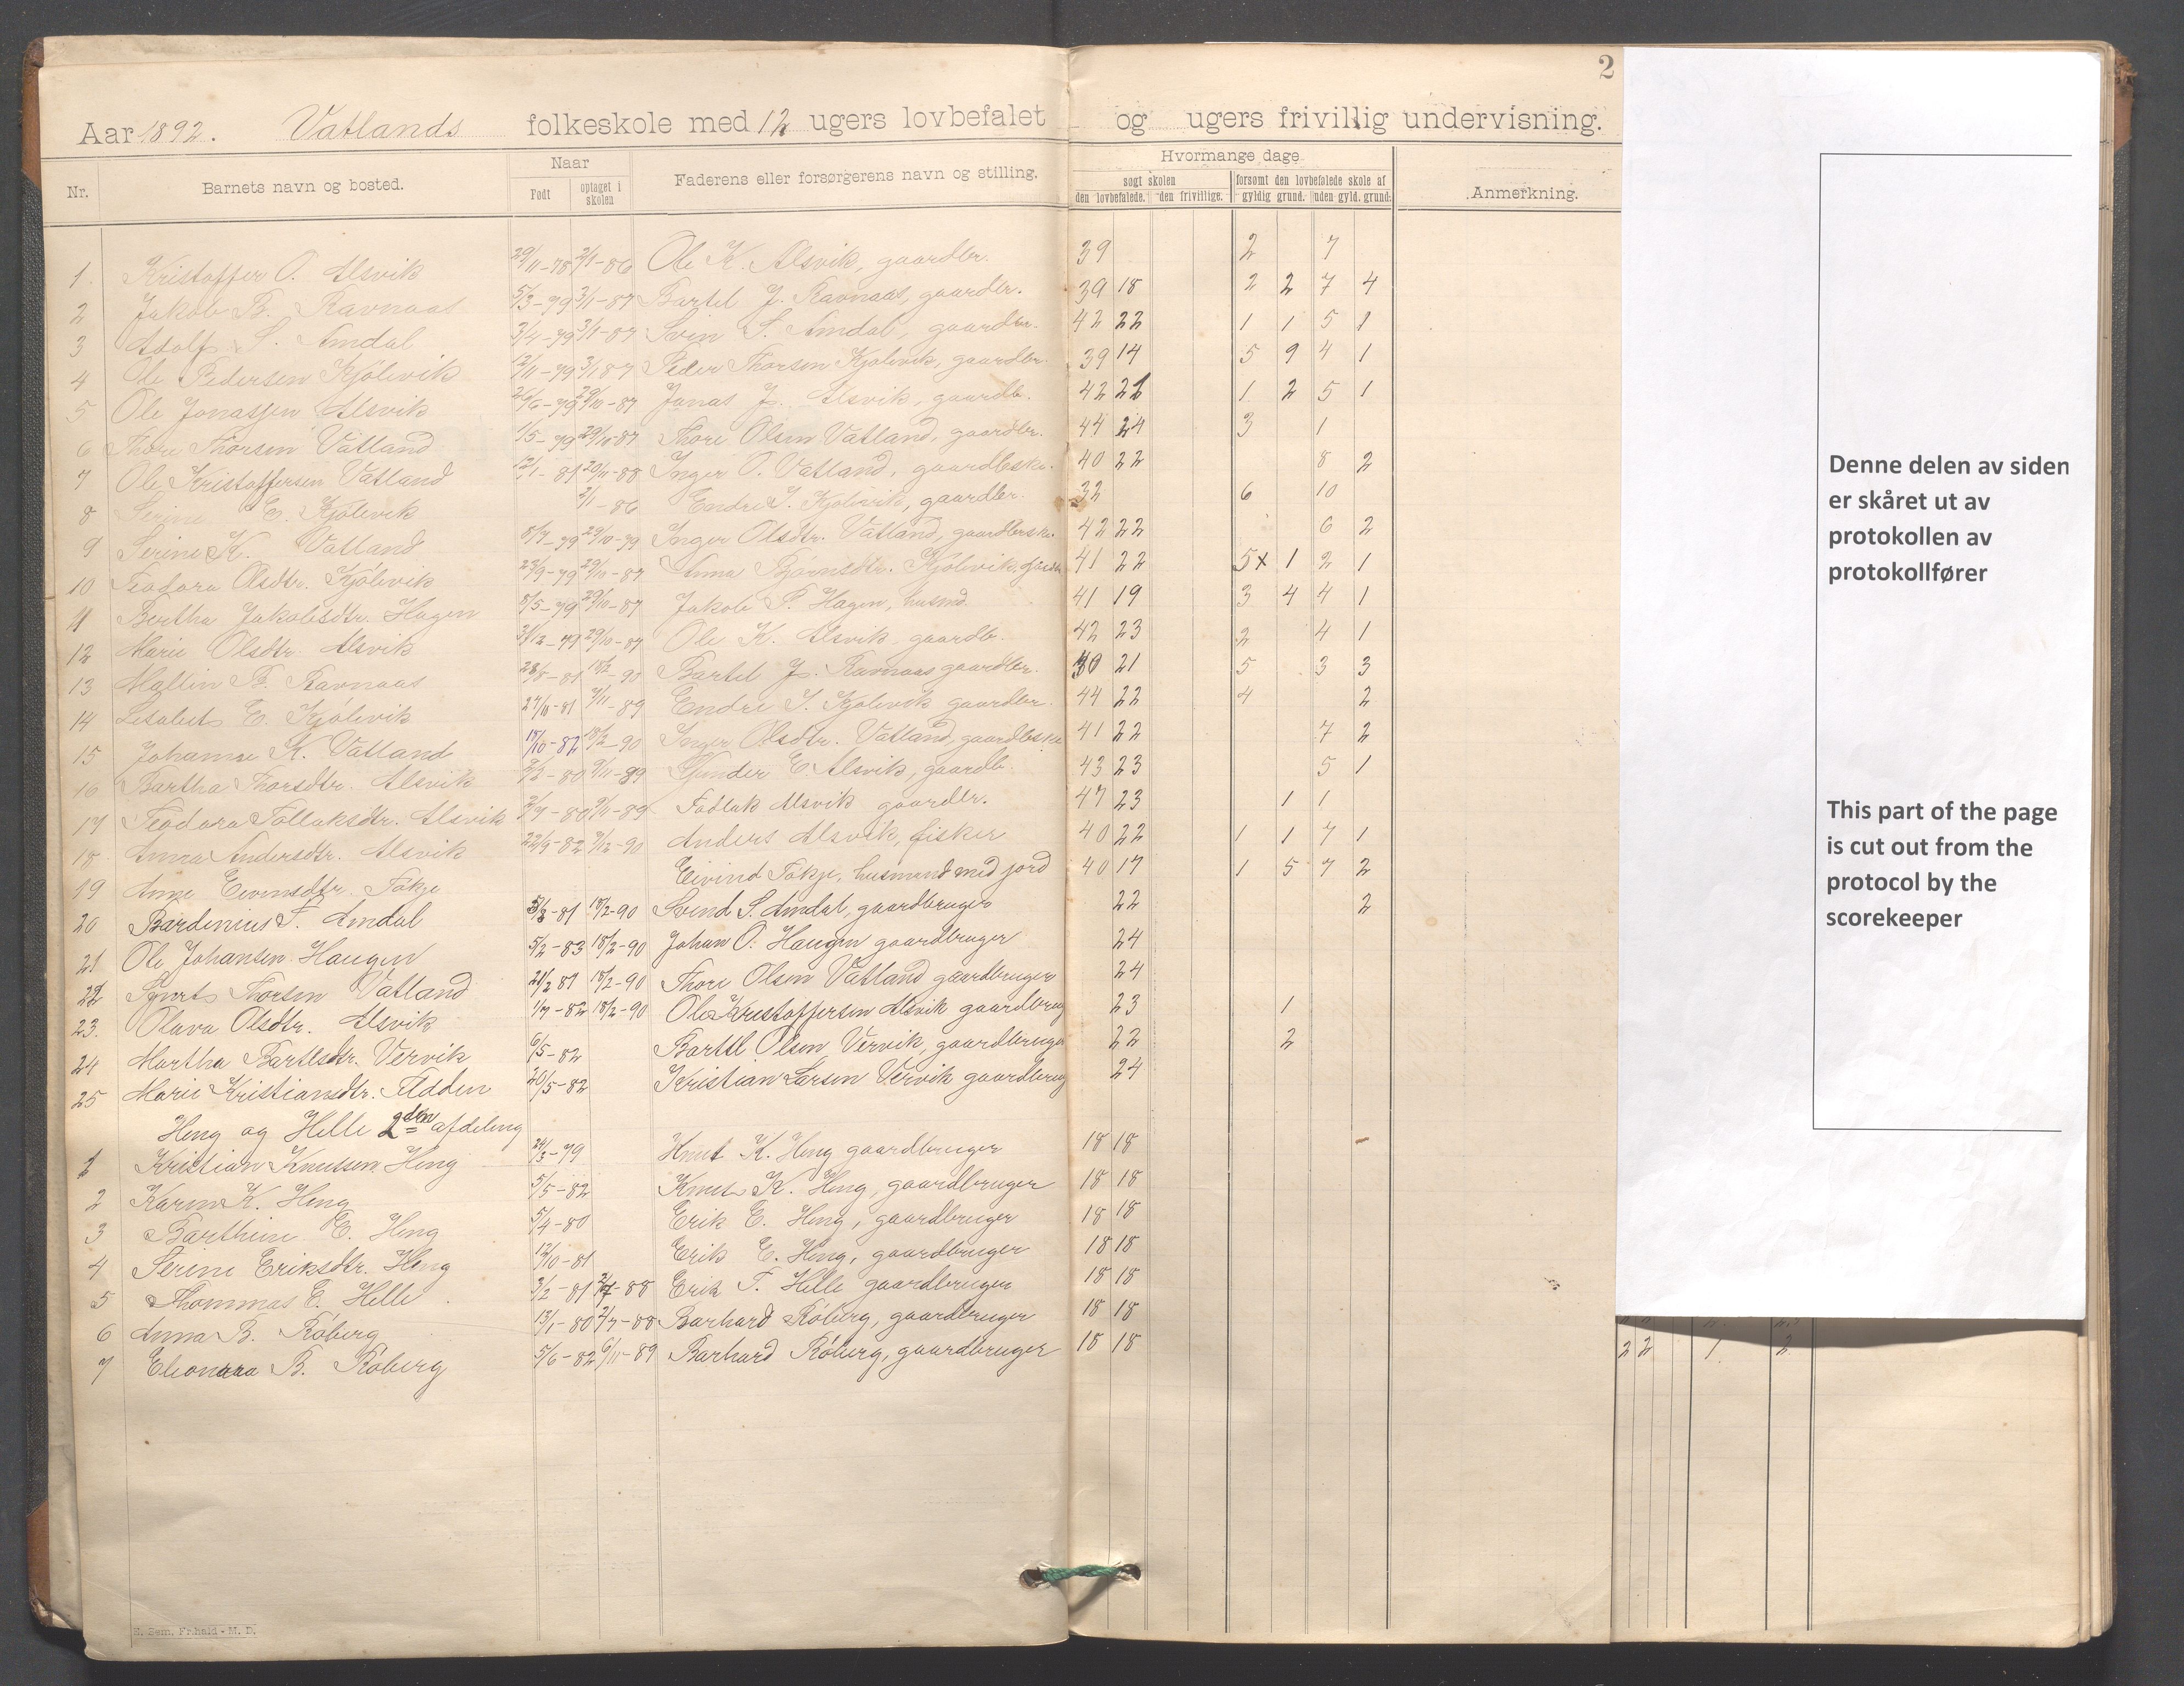 2
Aar 1892. Vatlands folkeskole med 12 ugers lovbefalet og ugers frivillig undervisning.
Nr. Barnets navn og bosted. Naar Født optaget i skolen Faderens eller forsørgerens navn og stilling. Hvormange dage søgt skolen den lovbefalede. den frivillige. forsømt den lovbefalede skole af gyldig grund. uden gyld. grund. Anmerkning.
1. Kristoffer O. Alsvik 29/11-78 2/1-86 Ole K. Alsvik, gaardbr. 39 2 7
2 Jakob B. Ravnaas 5/3-79 3/1-87 Bartel J. Ravnaas, gaardbr. 39 18 2 2 7 4
3 Adolf S. Amdal 3/4-79 3/1-87 Sven S. Amdal, gaardbr. 42 22 1 1 5 1
4 Ole Pedersen Kjølevik 12/11-79 3/1 87 Peder Thorsen Kjølevik, gaardbr. 39 14 5 9 4 1
5 Ole Jonassen Alsvik 26/6-79 29/10-87 Jonas J. Alsvik, gaardb. 42 22 1 2 5 1
6 Thore Thorsen Vatland 1/5-79 29/10-87 Thore Olsen Vatland, gaardbr. 44 24 3 1
7 Ole Kristoffersen Vatland 12/1-81 20/11-88 Inger O. Vatland, gaardbske. 40 22 8 2
8 Serine E. Kjølevik 2/1-86 Endre I. Kjølevik, gaardbr. 32 6 10
9 Serine K. Vatland 8/7-79 29/10-79 Inger Olsdtr. Vatland, gaardbrske. 42 22 6 2
10 Teodora Olsdtr. Kjølevik 23/9-79 29/10-87 Anna Bjørnsdtr. Kjølevik 41 22 5x 1 2 1
11 Bertha Jakobsdtr. Hagen 8/5-79 29/10-87 Jakob P. Hagen, husmd. 41 19 3 4 4 1
12 Marie Olsdtr. Alsvik 31/12-79 29/10-87 Ole K. Alsvik gaardb. 42 23 2 4 1
13 Mallin B. Ravnaas 28/5-81 18/2-90 Bartel J. Ravnaas gaardbr. 30 21 5 3 3
14 Lisabet E. Kjølevik 27/10-81 9/11-89 Endre I. Kjølevik gaardbr. 44 22 4 2
15 Johanna K. Vatland 18/10-82 18/2-90 Inger Olsdtr. Vatland, gaardbske 41 22 7 2
16 Bartha Thorsdtr. Alsvik 2/3-80 9/11-89 E. Alsvik, gaardb. 43 23 5 1
17 Teodora Tollaksdtr. Alsvik 2/9-80 9/11-89 Tollak Alsvik gaardbr. 47 23 1 1
18 Anna Andersdtr. Alsvik 22/9-82 9/12-90 Anders Alsvik, fisker 40 22 1 1 7 1
19 Anne Eivensdtr. Tøkje Eivind Tøkje, husmand med jord 40 17 1 5 7 2
20 Bardinius S. Amdal 5/3-81 18/2-90 Svend S. Amdal, gaardbruger 22 2
21 Ole Johansen Haugen 5/2-83 18/2-90 Johan O. Haugen gaardbruger 24
22 Sjurt Thorsen Vatland 21/2 81 18/2-90 Thore Olsen Vatland gaardbruger 24
23. Olava Olsdtr. Alsvik 1/7-82 18/2-90 Ole Kristoffersen Alsvik gaardbrug 23 1
24 Martha Bartelsdtr. Vervik 6/5-82 Bartel Olsen Vervik, gaardbruger 22 2
25 Marie Kristiansdtr. Tedden 20/5-82 Kristian Larsen Vervik gaardbrug 24
Heng og Helle 2den afdeling
1 Kristian Knutsen Heng 24/3-79 Knut K. Heng gaardbruger 18 18
2 Karen K. Heng 5/5-82 Knut K. Heng, gaardbruger 18 18
3 Barthine E. Heng 5/4-80 Erik E. Heng, gaardbruger 18 18
4 Serine Eriksdtr. Heng 12/10-81 Erik E. Heng, gaardbruger 18 18
5 Thommas E. Helle 3/2-81 2/7-88 Erik T. Helle gaardbruger 18 18
6 Anna B. Røberg 13/1-80 2/7-88 Barhard Røberg, gaardbruger 18 18
7 Eleonora B. Røberg 5/6-82 6/11-89 Barhard Røberg, gaardbruger 18 18
22 1 2
Denne delen av siden
er skåret ut av
protokollen av
protokollfører
This part of the page
is cut out from the
protocol by the
scorekeeper